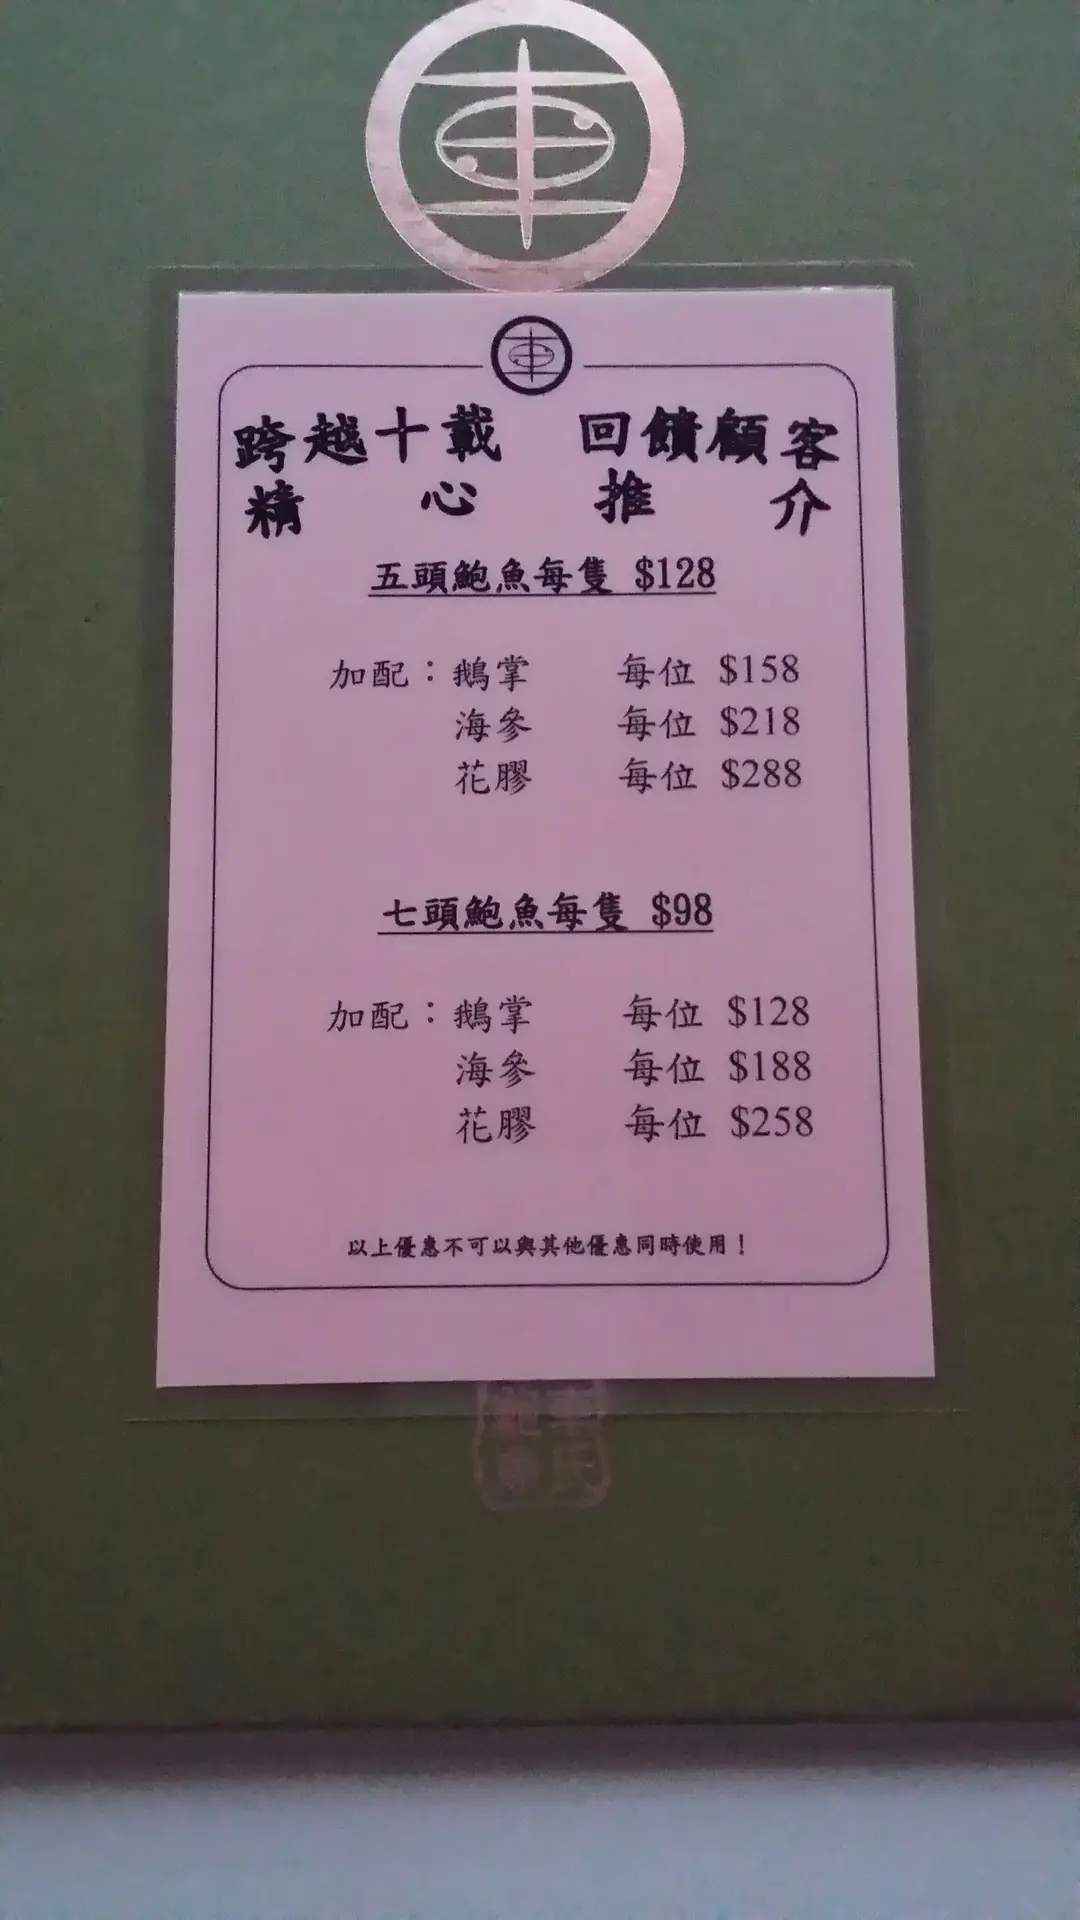 車
車
跨越十載 回饋顧客
精心推介
五頭鮑魚每隻 $128
加配：鵝掌 每位 $158
海參 每位 $218
花膠 每位 $288
七頭鮑魚每隻 $98
加配：鵝掌 每位 $128
海參 每位 $188
花膠 每位 $258
以上優惠不可以與其他優惠同時使用！